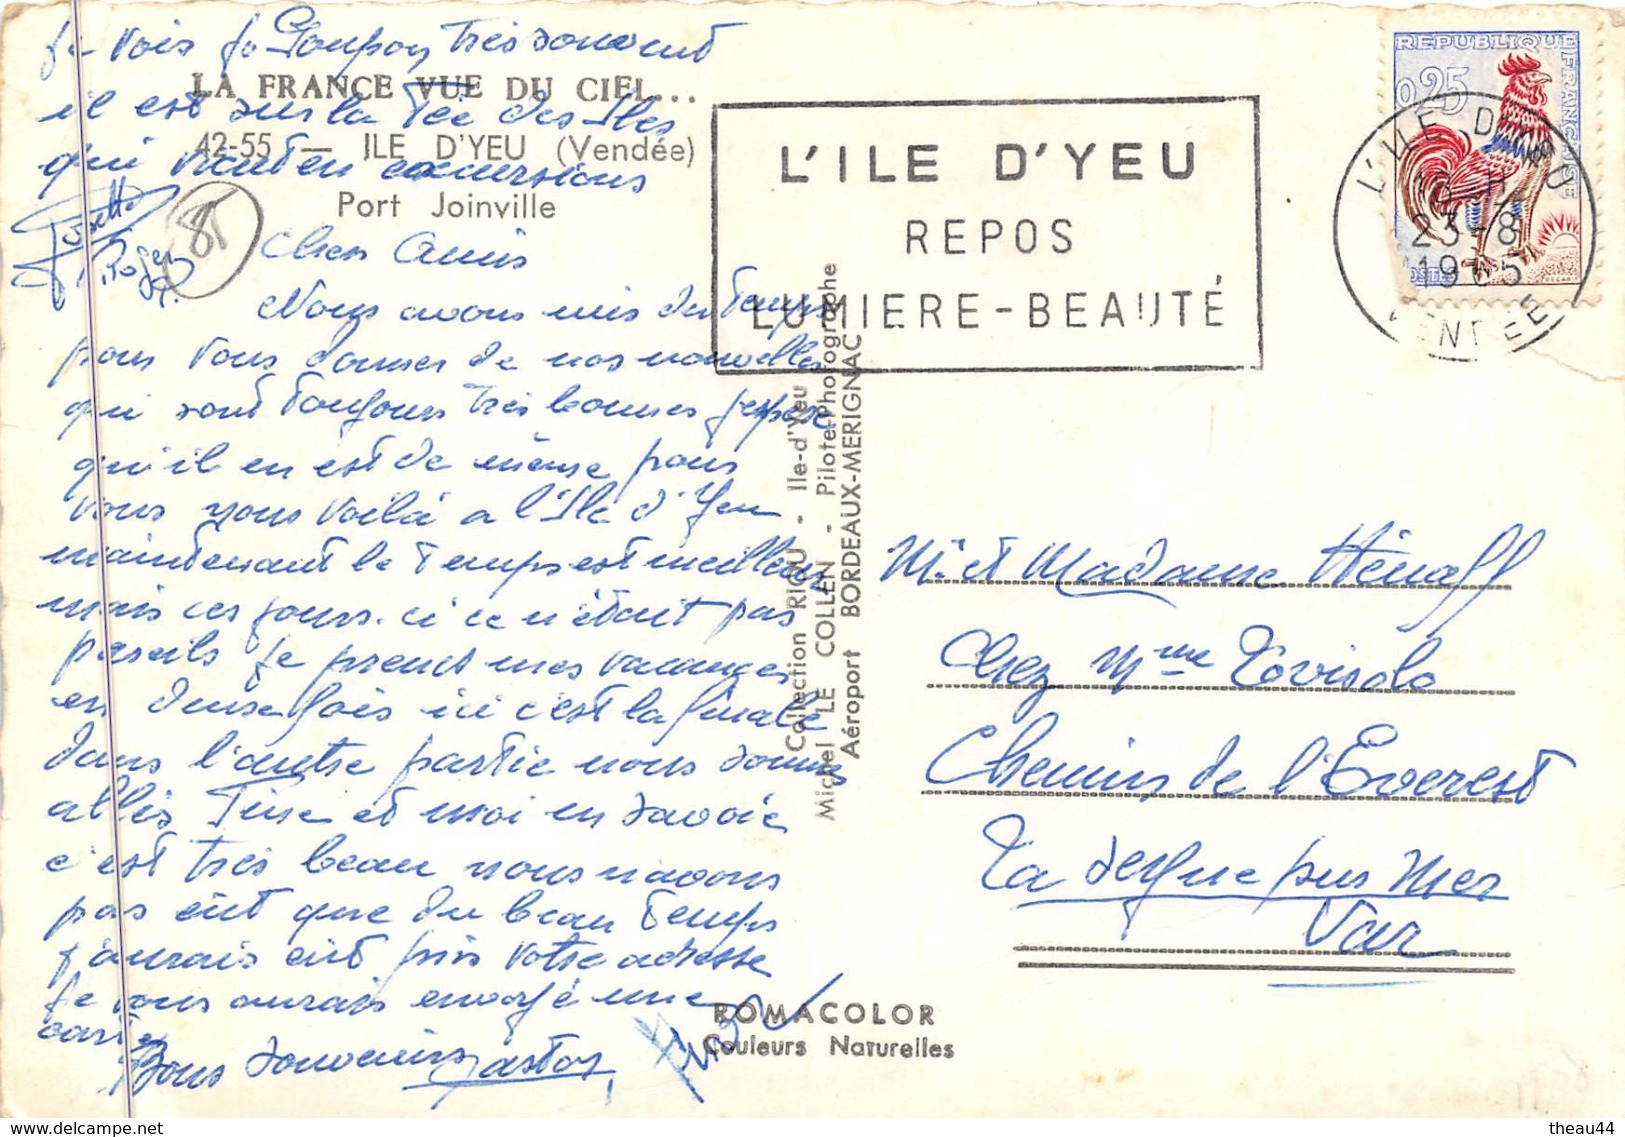 Je vois Jo Loupoy très souvent
il est sur la Fée des Iles
qui vont en excursions
LA FRANCE VUE DU CIEL...
42-55 — ILE D'YEU (Vendée)
Port Joinville
Josette
Roger
85
Chers Amis
Nous avons mis du temps
pour vous donner de nos nouvelles
qui sont toujours très bonnes j'espère
qu'il en est de même pour
vous nous voilà a l'Ile d'Yeu
maintenant le temps est meilleur
mais ces jours. ci ce n'était pas
pareils je prends mes vacances
en deux fois ici c'est la finale
dans l'autre partie nous sommes
allés Fine et moi en Savoie
c'est très beau nous navons
pas eut que du beau temps
j'aurais eut pris votre adresse
je vous aurais envoyé une
carte
Bons Souvenirs Gaston
L'ILE D'YEU
REPOS
LUMIERE-BEAUTÉ
REPUBLIQUE FRANÇAISE
0,25
POSTES
L'ILE D'YEU
23-8
1965
VENDEE
Collection RIOU - Ile-d'Yeu
Michel LE COLLEN - Pilote-Photographe
Aéroport BORDEAUX-MERIGNAC
Mr et Madame Hénaff
Chez Mme Tovisolo
Chemin de l'Everest
La Seyne sur Mer
Var
ROMACOLOR
Couleurs Naturelles
theau44